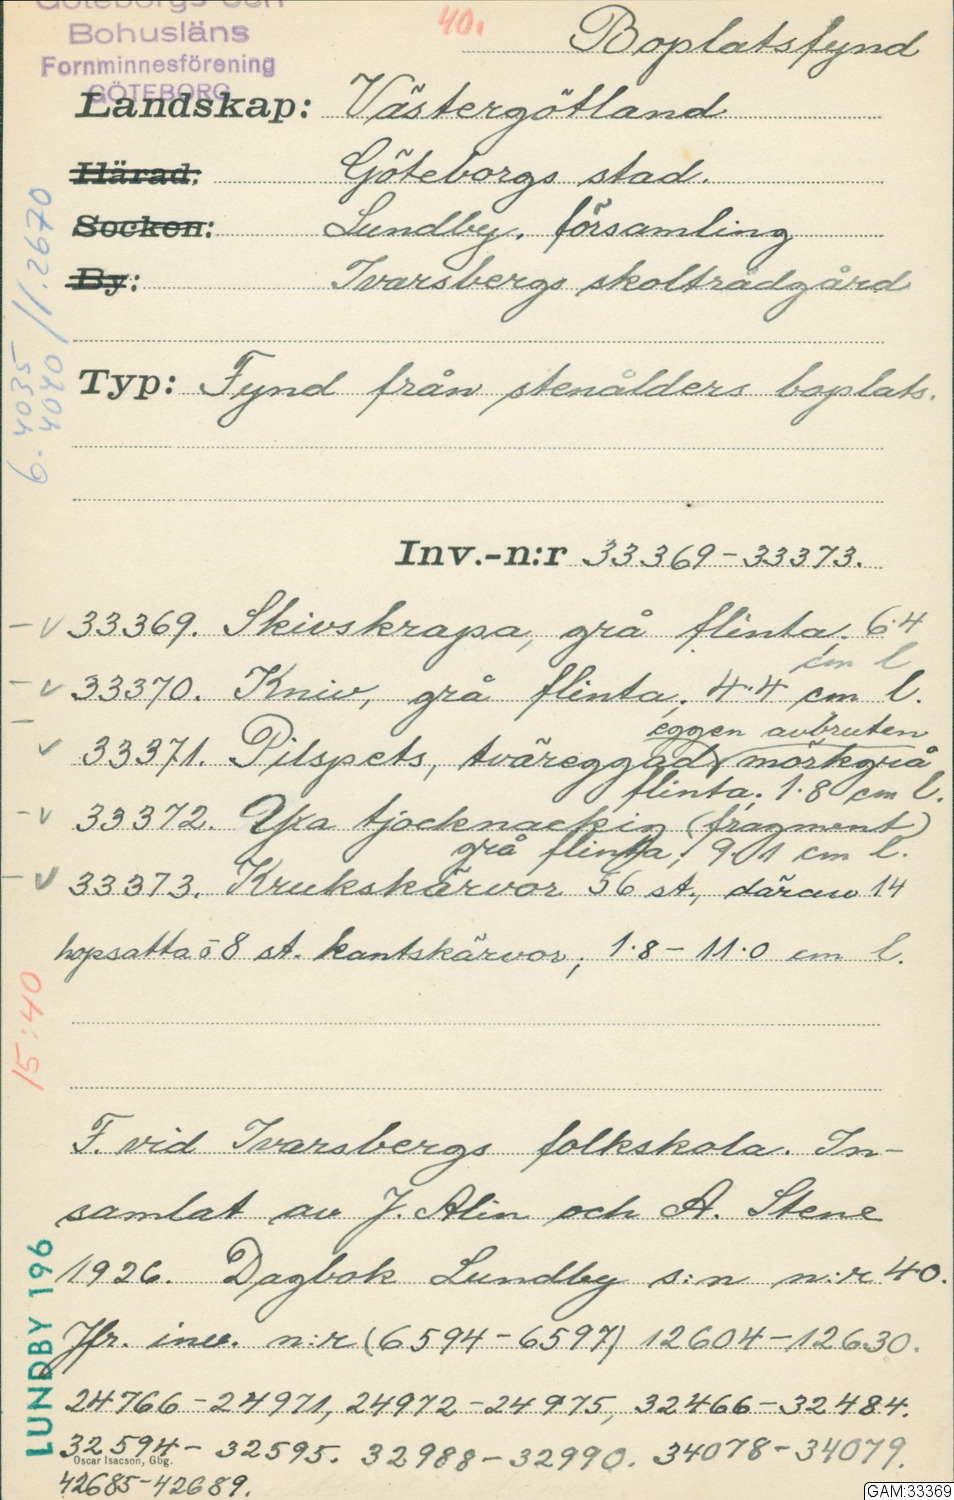 Göteborgs och
Bohusläns
Fornminnesförening
GÖTEBORG
40.
Boplatsfynd
Landskap: Västergötland
Härad: Göteborgs stad.
Socken: Lundby. församling
By: Ivarsbergs skolträdgård
6. 4035
4040 / 1.2670
Typ: Fynd från stenålders boplats.
Inv.-n:r 33369-33373.
- v 33369. Skivskrapa, grå flinta. 6.4
cm l
- v 33370. Kniv, grå flinta; 4.4 cm l.
eggen avbruten
- v 33371. Pilspets, tväreggad, mörkgrå
flinta; 1.8 cm l.
- v 33372. Yxa tjocknackig (fragment)
grå flinta; 9.1 cm l.
- v 33373. Krukskärvor 56 st., därav 14
hopsatta o 8 st. kantskärvor; 1.8 - 11.0 cm l.
15:40
F. vid Ivarsbergs folkskola. In-
samlat av J. Alin och A. Stene
1926. Dagbok Lundby s:n n:r 40.
Jfr. inv. n:r (6594-6597) 12604-12630.
24766-24971, 24972-24975, 32466-32484.
32594- 32595. 32988-32990. 34078-34079.
Oscar Isacson, Gbg.
42685-42689.
LUNDBY 196
GAM:33369